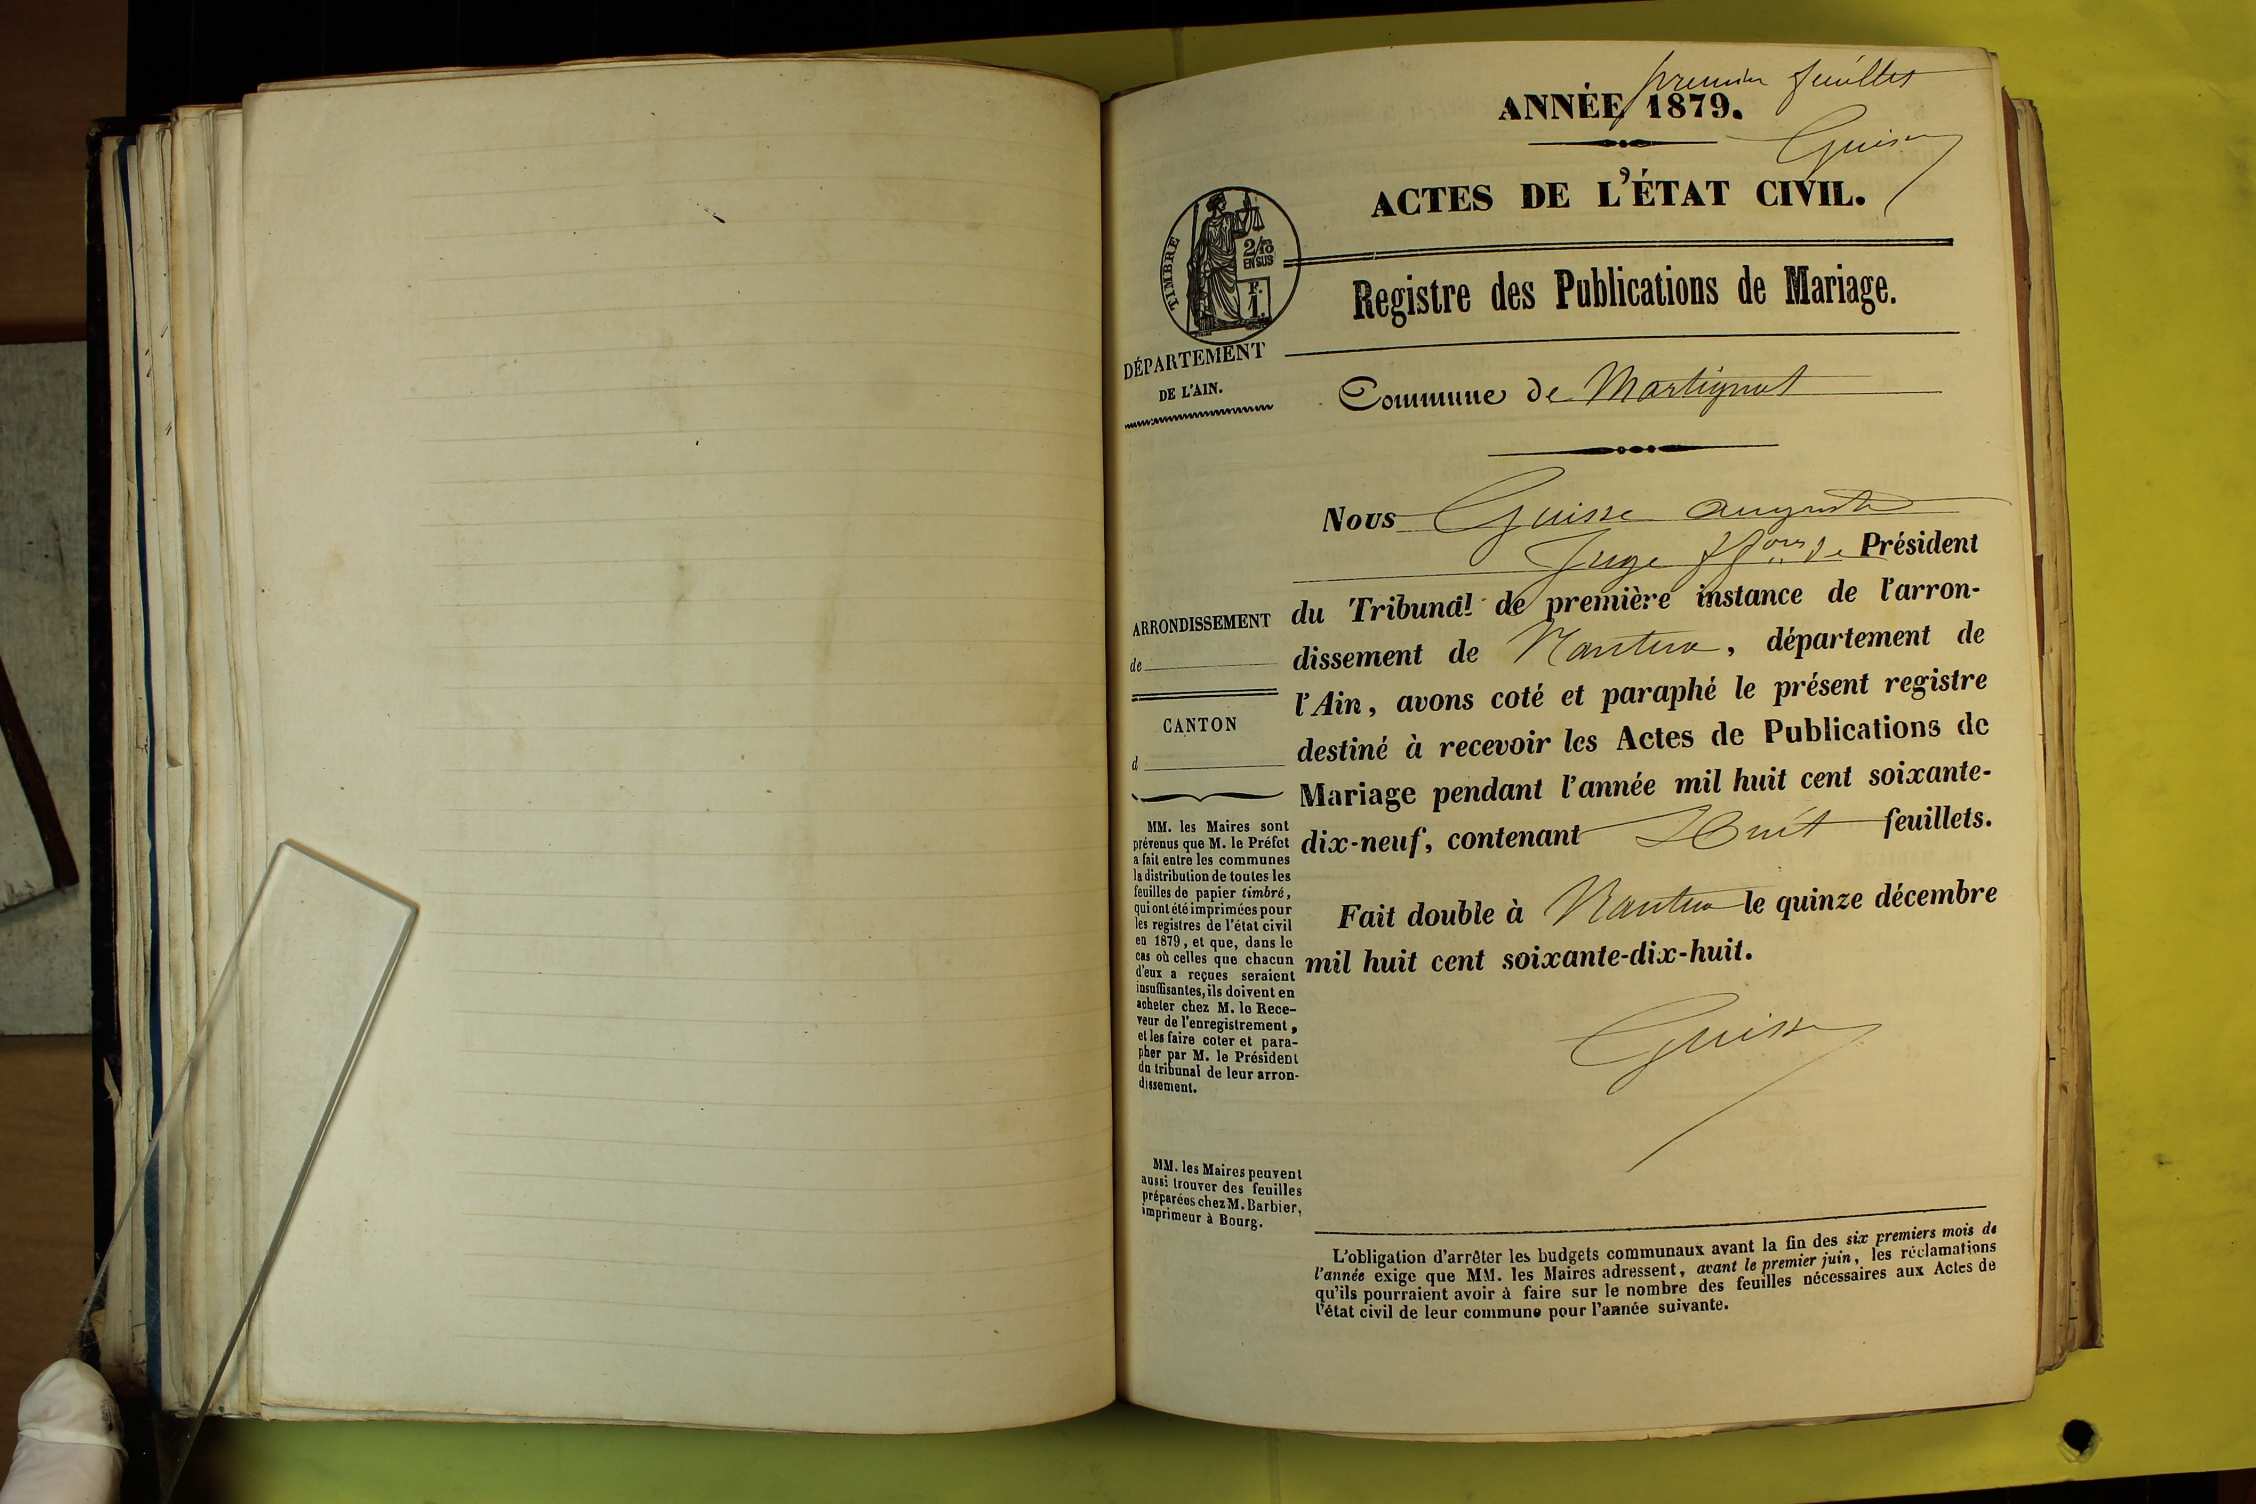 premier feuillet
ANNÉE 1879.
Guisse
ACTES DE L'ÉTAT CIVIL.
TIMBRE
2/10
EN SUS
F.
1.
Registre des Publications de Mariage.
DÉPARTEMENT
DE L'AIN.
Commune de Martignat
Nous Guisse auguste
Juge ffons de Président
du Tribunal de première instance de l'arron-
dissement de Nantua, département de
l'Ain, avons coté et paraphé le présent registre
destiné à recevoir les Actes de Publications de
Mariage pendant l'année mil huit cent soixante-
dix-neuf, contenant Huit feuillets.
Fait double à Nantua le quinze décembre
mil huit cent soixante-dix-huit.
Guisse
ARRONDISSEMENT
de
CANTON
d
MM. les Maires sont
prévenus que M. le Préfet
a fait entre les communes
la distribution de toutes les
feuilles de papier timbré,
qui ont été imprimées pour
les registres de l'état civil
en 1879, et que, dans le
cas où celles que chacun
d'eux a reçues seraient
insuffisantes, ils doivent en
acheter chez M. le Rece-
veur de l'enregistrement,
et les faire coter et para-
pher par M. le Président
du tribunal de leur arron-
dissement.
MM. les Maires peuvent
aussi trouver des feuilles
préparées chez M. Barbier,
imprimeur à Bourg.
L'obligation d'arrêter les budgets communaux avant la fin des six premiers mois de
l'année exige que MM. les Maires adressent, avant le premier juin, les réclamations
qu'ils pourraient avoir à faire sur le nombre des feuilles nécessaires aux Actes de
l'état civil de leur commune pour l'année suivante.